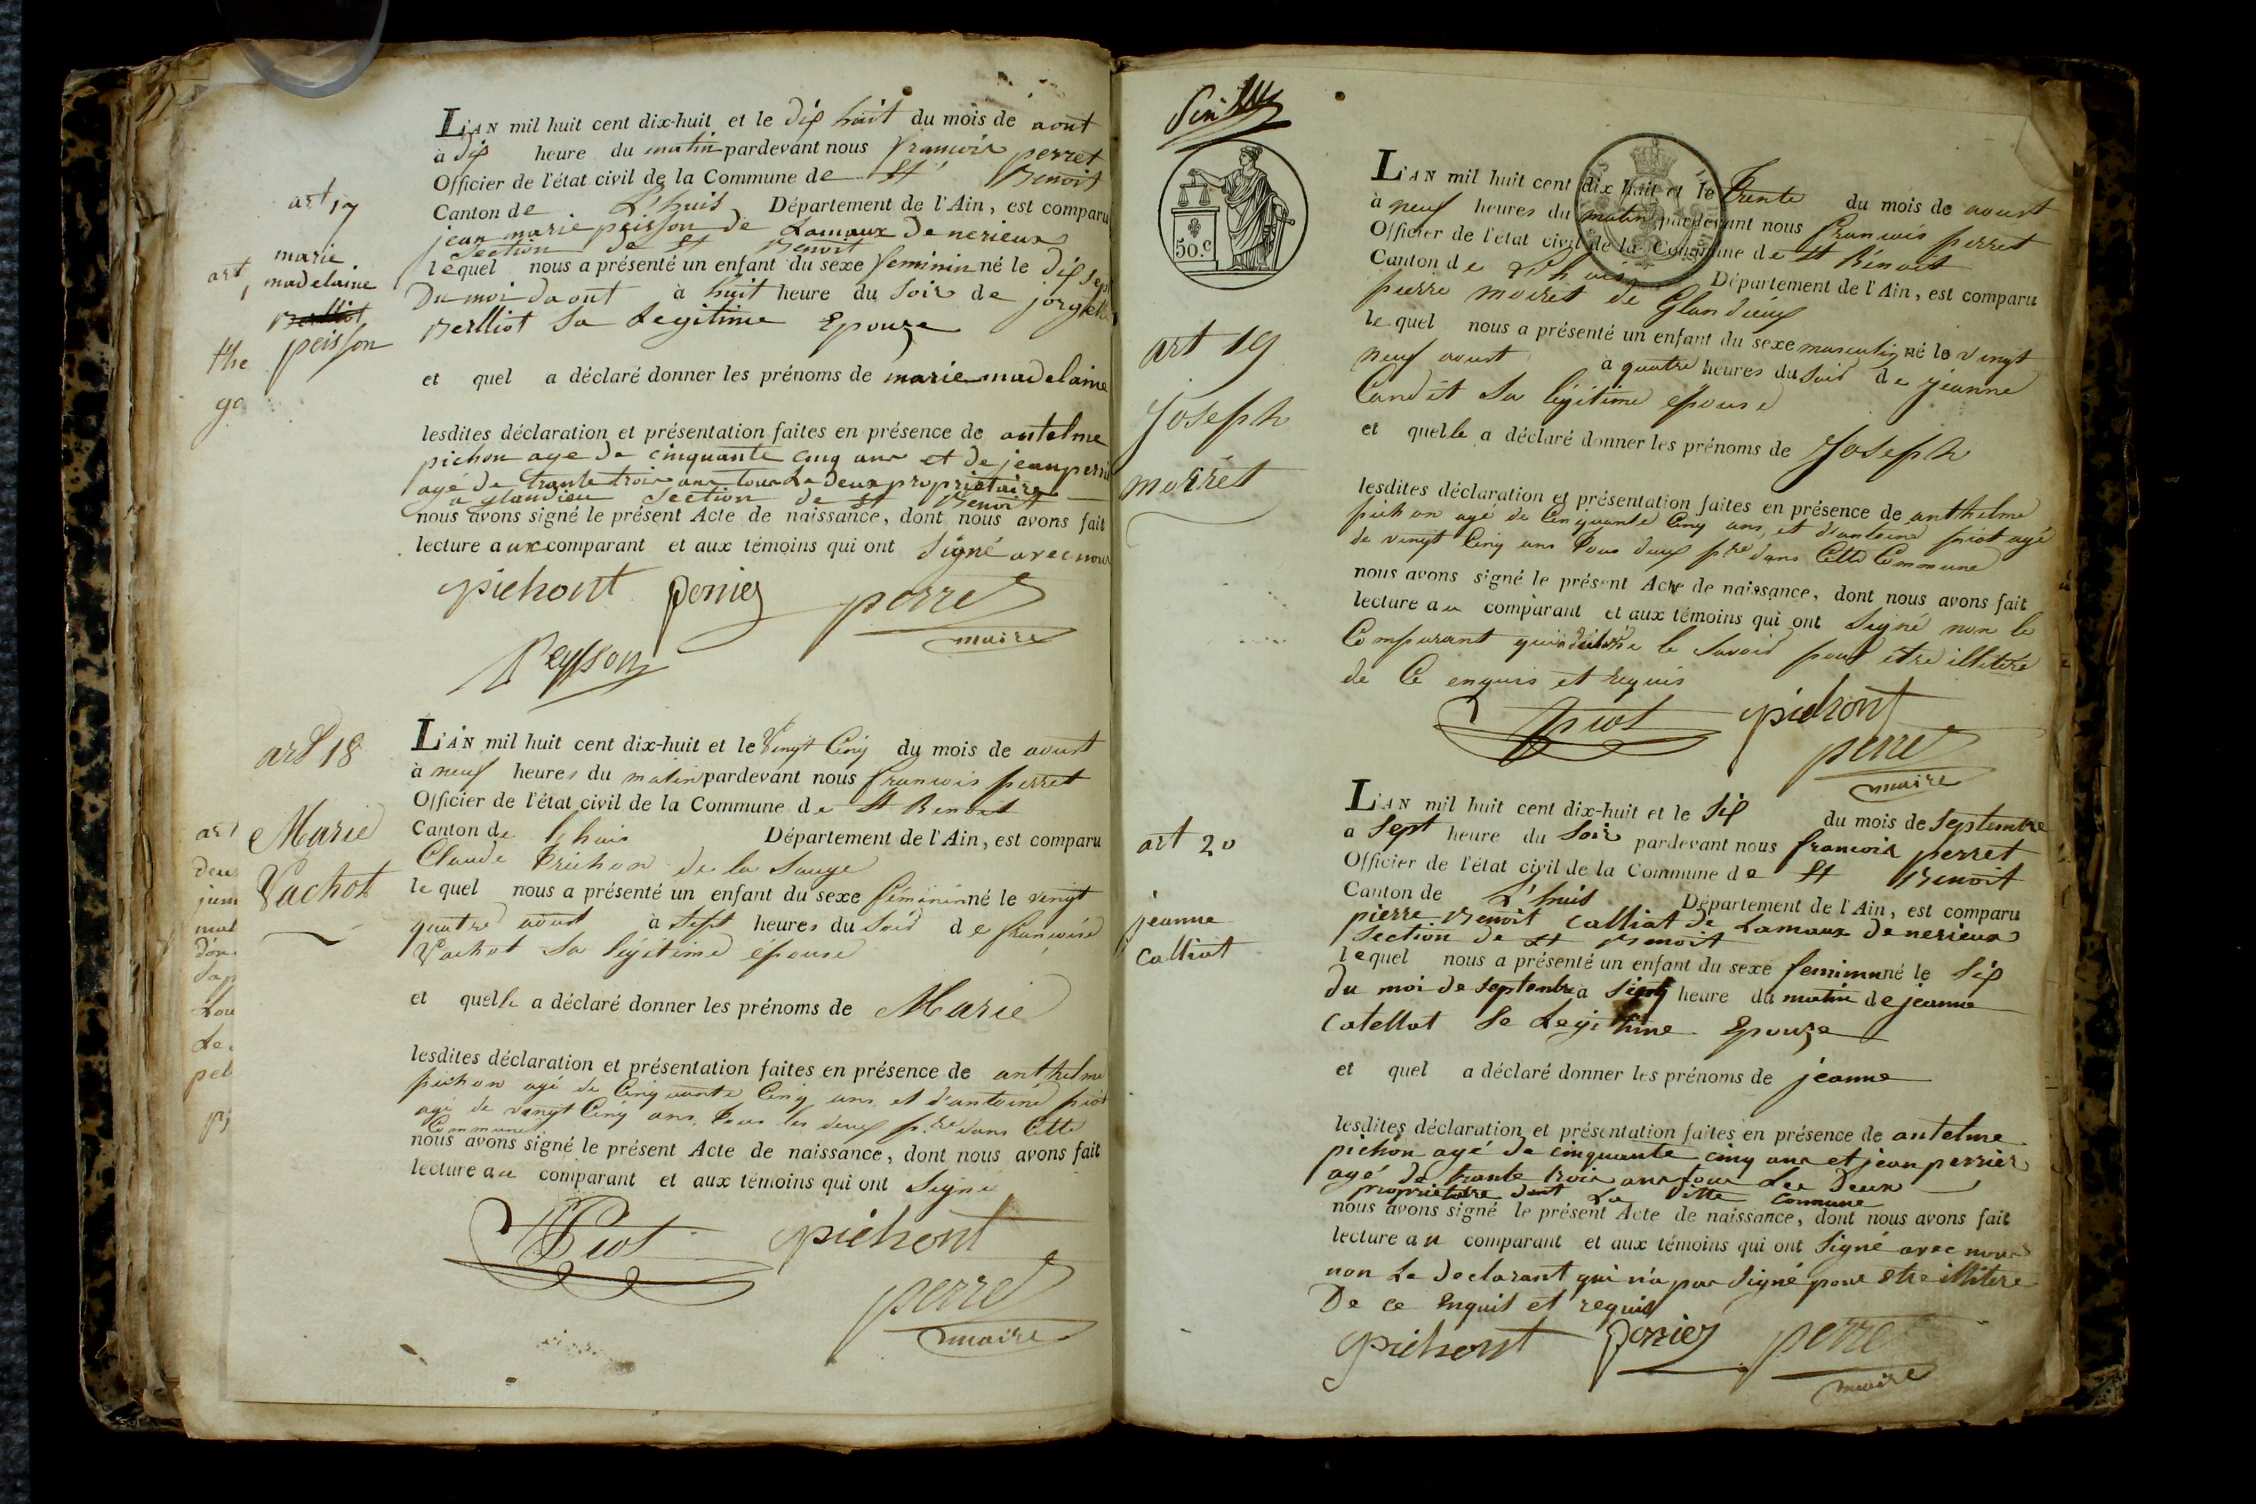 art 17
marie
madelaine
peisson
L'AN mil huit cent dix-huit et le dix huit du mois de aout
à dix heure du matin pardevant nous francois perret
Officier de l'état civil de la Commune de St Benoit
Canton de L'huis Département de l'Ain, est comparu
jean marie peisson de Lamaux de nerieux
section de St Benoit
lequel nous a présenté un enfant du sexe feminin né le dix sept
Du moi daout à huit heure du soir de
verlliot Sa Legitime Epouze
et quel a déclaré donner les prénoms de marie madelaine
lesdites déclaration et présentation faites en présence de antelme
pichon age de cinquante cinq ans et de jean perrier
agé de trante trois ans tous Le deux propriétaire
a glandieu Section de St Benoit
nous avons signé le présent Acte de naissance, dont nous avons fait
lecture aux comparant et aux témoins qui ont Signé avec nous
pichont perrier perret
maire
Peysson
art 18
Marie
Vachot
L'AN mil huit cent dix-huit et le Vingt Cinq du mois de aoust
à neuf heures du matin pardevant nous francois perret
Officier de l'état civil de la Commune de St Benoit
Canton de Lhuis Département de l'Ain, est comparu
Claude Trichon de la Sauge
le quel nous a présenté un enfant du sexe féminin né le vingt
quatre aout à sept heures du Soir de francoise
Vachot Sa légitime épouse
et quelle a déclaré donner les prénoms de Marie
lesdites déclaration et présentation faites en présence de anthelme
pichon agé de Cinquante Cinq ans et d'antoine piot
agé de vingt Cinq ans, tous les deux p.re dans Cette
Commune
nous avons signé le présent Acte de naissance, dont nous avons fait
lecture au comparant et aux témoins qui ont Signé
Piot pichont
perret
maire
50.c
art 19
Joseph
moiret
L'AN mil huit cent dix huit et le Trente du mois de aoust
à neuf heures du matin pardevant nous francois perret
Officier de l'état civil de la Commune de St Bénoit
Canton de Lhuis Département de l'Ain, est comparu
pierre moiret de Glandieux
le quel nous a présenté un enfant du sexe masculin né le vingt
neuf aoust à quatre heures du Soir de jeanne
Candit Sa légitime épouse
et quelle a déclaré donner les prénoms de Joseph
lesdites déclaration et présentation faites en présence de anthelme
pichon agé de Cinquante Cinq ans, et d'antoine piot agé
de vingt Cinq ans Tous deux p.re dans Cette Commune
nous avons signé le présent Acte de naissance, dont nous avons fait
lecture au comparant et aux témoins qui ont Signé non le
Comparant le Savoir pour être illitéré
de Ce enquis et requis
piot pichont
perret
maire
art 20
jeanne
calliat
L'AN mil huit cent dix-huit et le Six du mois de Septembre
a Sept heure du Soir pardevant nous francois perret
Officier de l'état civil de la Commune de St Benoit
Canton de L'huis Département de l'Ain, est comparu
pierre Benoit Calliat de Lamaux de nerieux
Section de St Benoit
lequel nous a présenté un enfant du sexe feminin né le Six
du moi de Septembre à heure du matin de jeanne
Catellat Se Legithme Epouze
et quel a déclaré donner les prénoms de jeanne
lesdites déclaration et présentation faites en présence de antelme
pichon agé de cinquante cinq ans et jean perrier
agé de trante trois ans tous Les Deux
propriétaire dant La ditte commune
nous avons signé le présent Acte de naissance, dont nous avons fait
lecture au comparant et aux témoins qui ont Signé avec nous
non Le Declarant qui n'a pas Signé pour être illitere
De ce Enquis et requis
pichont perrier perret
maire